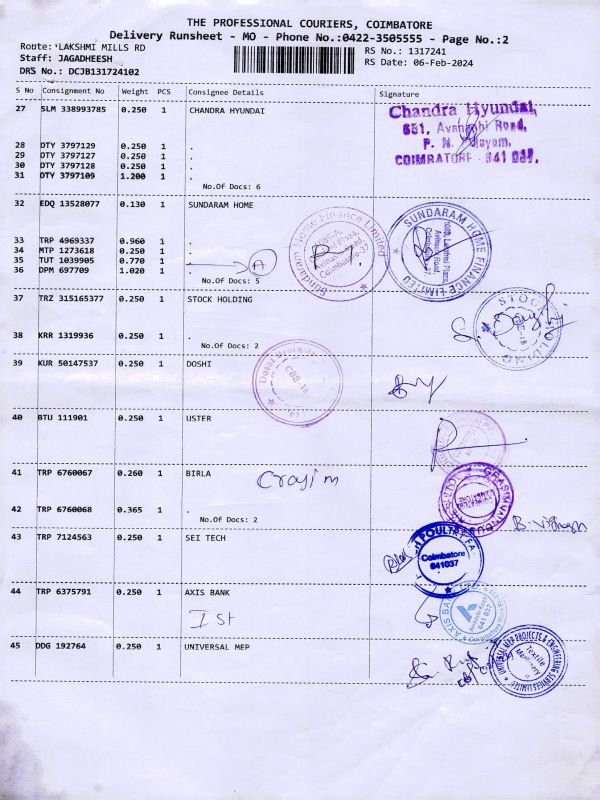 THE PROFESSIONAL COURIERS, COIMBATORE
Delivery Runsheet - MO - Phone No.:0422-3505555 - Page No.:2
Route: LAKSHMI MILLS RD
RS No.: 1317241
Staff: JAGADHEESH
RS Date: 06-Feb-2024
DRS No.: DCJB131724102
S No Consignment No Weight PCS Consignee Details Signature
27 SLM 338993785 0.250 1 CHANDRA HYUNDAI
Chandra Hyundai,
651, Avanashi Road,
28 DTY 3797129 0.250 1 .
P. N. Palayam,
29 DTY 3797127 0.250 1 .
COIMBATORE - 641 037.
30 DTY 3797128 0.250 1 .
31 DTY 3797109 1.200 1 .
No.Of Docs: 6
32 EDQ 13528077 0.130 1 SUNDARAM HOME
33 TRP 4969337 0.960 1 .
34 MTP 1273618 0.250 1 .
35 TUT 1039905 0.770 1 .
36 DPM 697709 1.020 1 .
A
No.Of Docs: 5
Sundaram Home Finance Limited
Coimbatore-37
SUNDARAM HOME FINANCE LIMITED
Avinashi Road,
Coimbatore-37.
37 TRZ 315165377 0.250 1 STOCK HOLDING
STOCK HOLDING
CBE-18
38 KRR 1319936 0.250 1 .
No.Of Docs: 2
39 KUR 50147537 0.250 1 DOSHI
CBE-18
40 BTU 111901 0.250 1 USTER
41 TRP 6760067 0.260 1 BIRLA
42 TRP 6760068 0.365 1 .
No.Of Docs: 2
43 TRP 7124563 0.250 1 SEI TECH
POULTRY
Coimbatore
641037
44 TRP 6375791 0.250 1 AXIS BANK
Ist
AXIS BANK
641 037
45 DDG 192764 0.250 1 UNIVERSAL MEP
UNIVERSAL MEP PROJECTS & ENGINEERING SERVICES LIMITED
Textile
Machinery